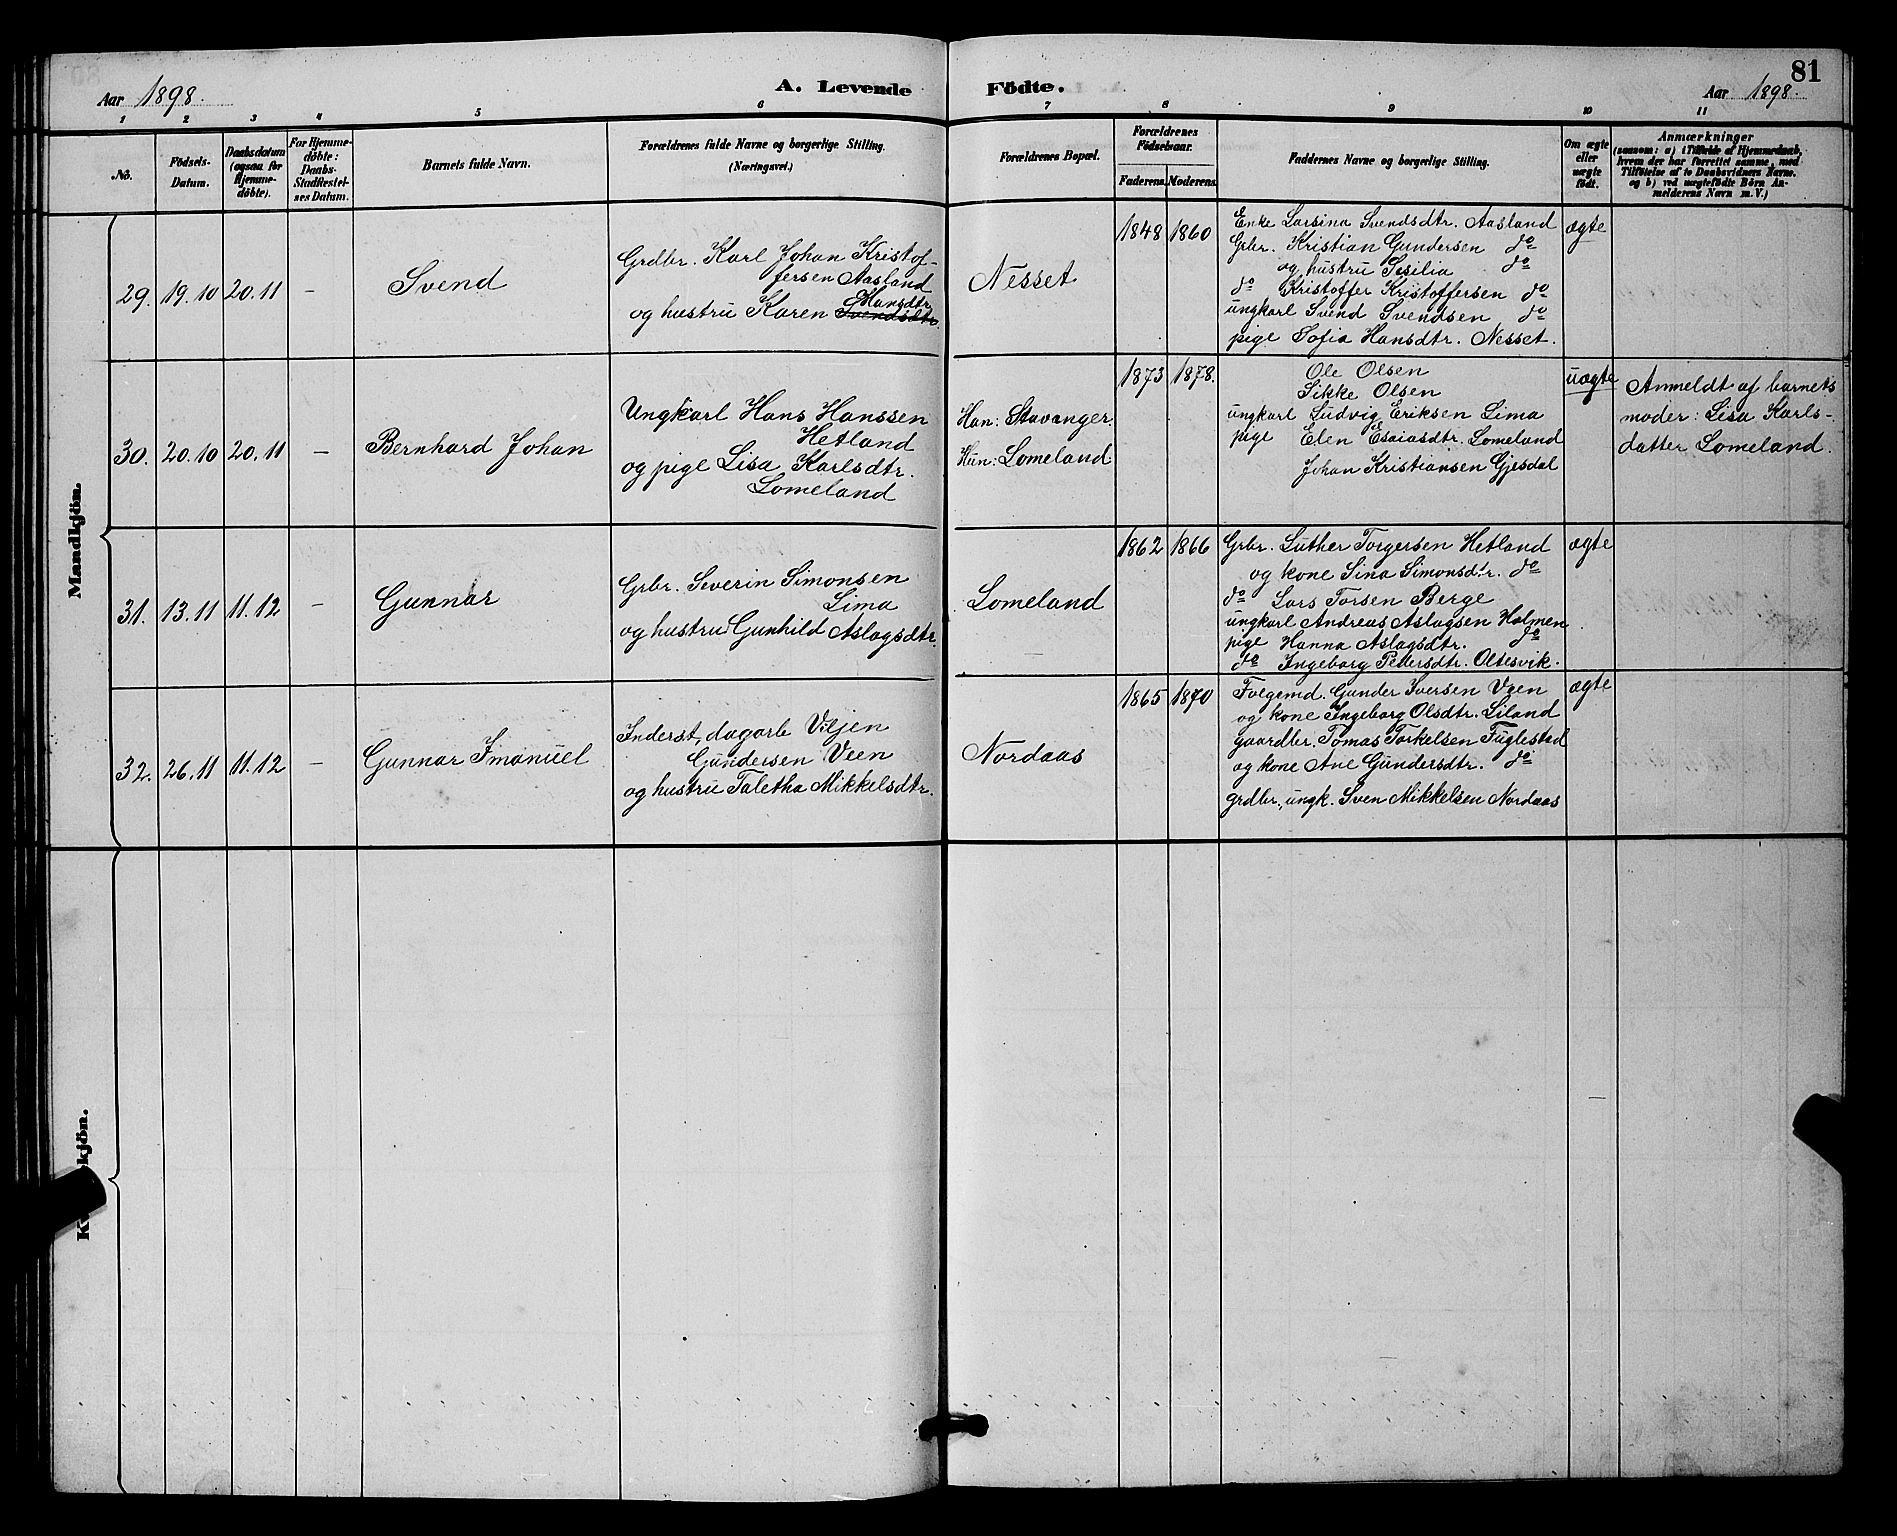 81
Aar 1898.
A. Levende Födte.
Aar 1898.
1 2 3 4 5 6 7 8 9 10 11
No.
Födsels-
Datum.
Daabsdatum
(ogsaa for
Hjemme-
döbte).
For Hjemme-
döbte:
Daabs-
Stadfæstel-
ses Datum.
Barnets fulde Navn.
Forældrenes fulde Navne og borgerlige Stilling.
(Næringsvei.)
Forældrenes Bopæl.
Forældrenes
Födselsaar.
Faderens. Moderens.
Faddernes Navne og borgerlige Stilling.
Om ægte
eller
uægte
födt.
Anmærkninger
(saasom: a) i Tilfælde af Hjemmedaab,
hvem der har forrettet samme, med
Tilföielse af to Daabsvidners Navne,
og b) ved uægtefödte Börn An-
melderens Navn m. V.)
Mandkjön.
29. 19.10 20.11 –
Svend
Grdbr. Karl Johan Kristof-
fersen Aasland
Hansdtr
og hustru Karen Svendsdtr.
Nesset
1848 1860
Enke Larsina Svendsdtr. Aasland
Grbr. Kristian Gundersen do
og hustru Sesilia do
do Kristoffer Kristoffersen do
ungkarl Svend Svendsen do
pige Sofia Hansdtr. Nesset.
ægte
30. 20.10 20.11 –
Bernhard Johan
Ungkarl Hans Hanssen
Hetland
og pige Lisa Karlsdtr.
Lomeland
Han: Stavanger.
Hun: Lomeland.
1873 1878.
Ole Olsen
Sikke Olsen
ungkarl Ludvig Eriksen Lima
pige Elen Esaiasdtr. Lomeland
Johan Kristiansen Gjesdal
uægte
Anmeldt af barnets
moder: Lisa Karls-
datter Lomeland.
31. 13.11 11.12 –
Gunnar
Grbr. Severin Simonsen
Lima
og hustru Gunhild Aslagsdtr.
Lomeland
1862 1866
Grbr. Luther Torgersen Hetland
og kone Sina Simonsdtr. do
do Lars Torsen Berge
ungkarl Andreas Aslagsen Holmen
pige Hanna Aslagsdtr. do
do Ingeborg Pedersdtr. Oltesvik.
ægte
32. 26.11 11.12 –
Gunnar Imanuel
Inderst, dagarb Viljen
Gundersen Veen
og hustru Taletha Mikkelsdtr.
Nordaas
1865 1870
Folgemd. Gunder Iversen Veen
og kone Ingeborg Olsdtr. Liland
gaardbr. Tomas Torkelsen Fuglestad
og kone Ane Gundersdtr. do
grdbr, ungk. Sven Mikkelsen Nordaas
ægte